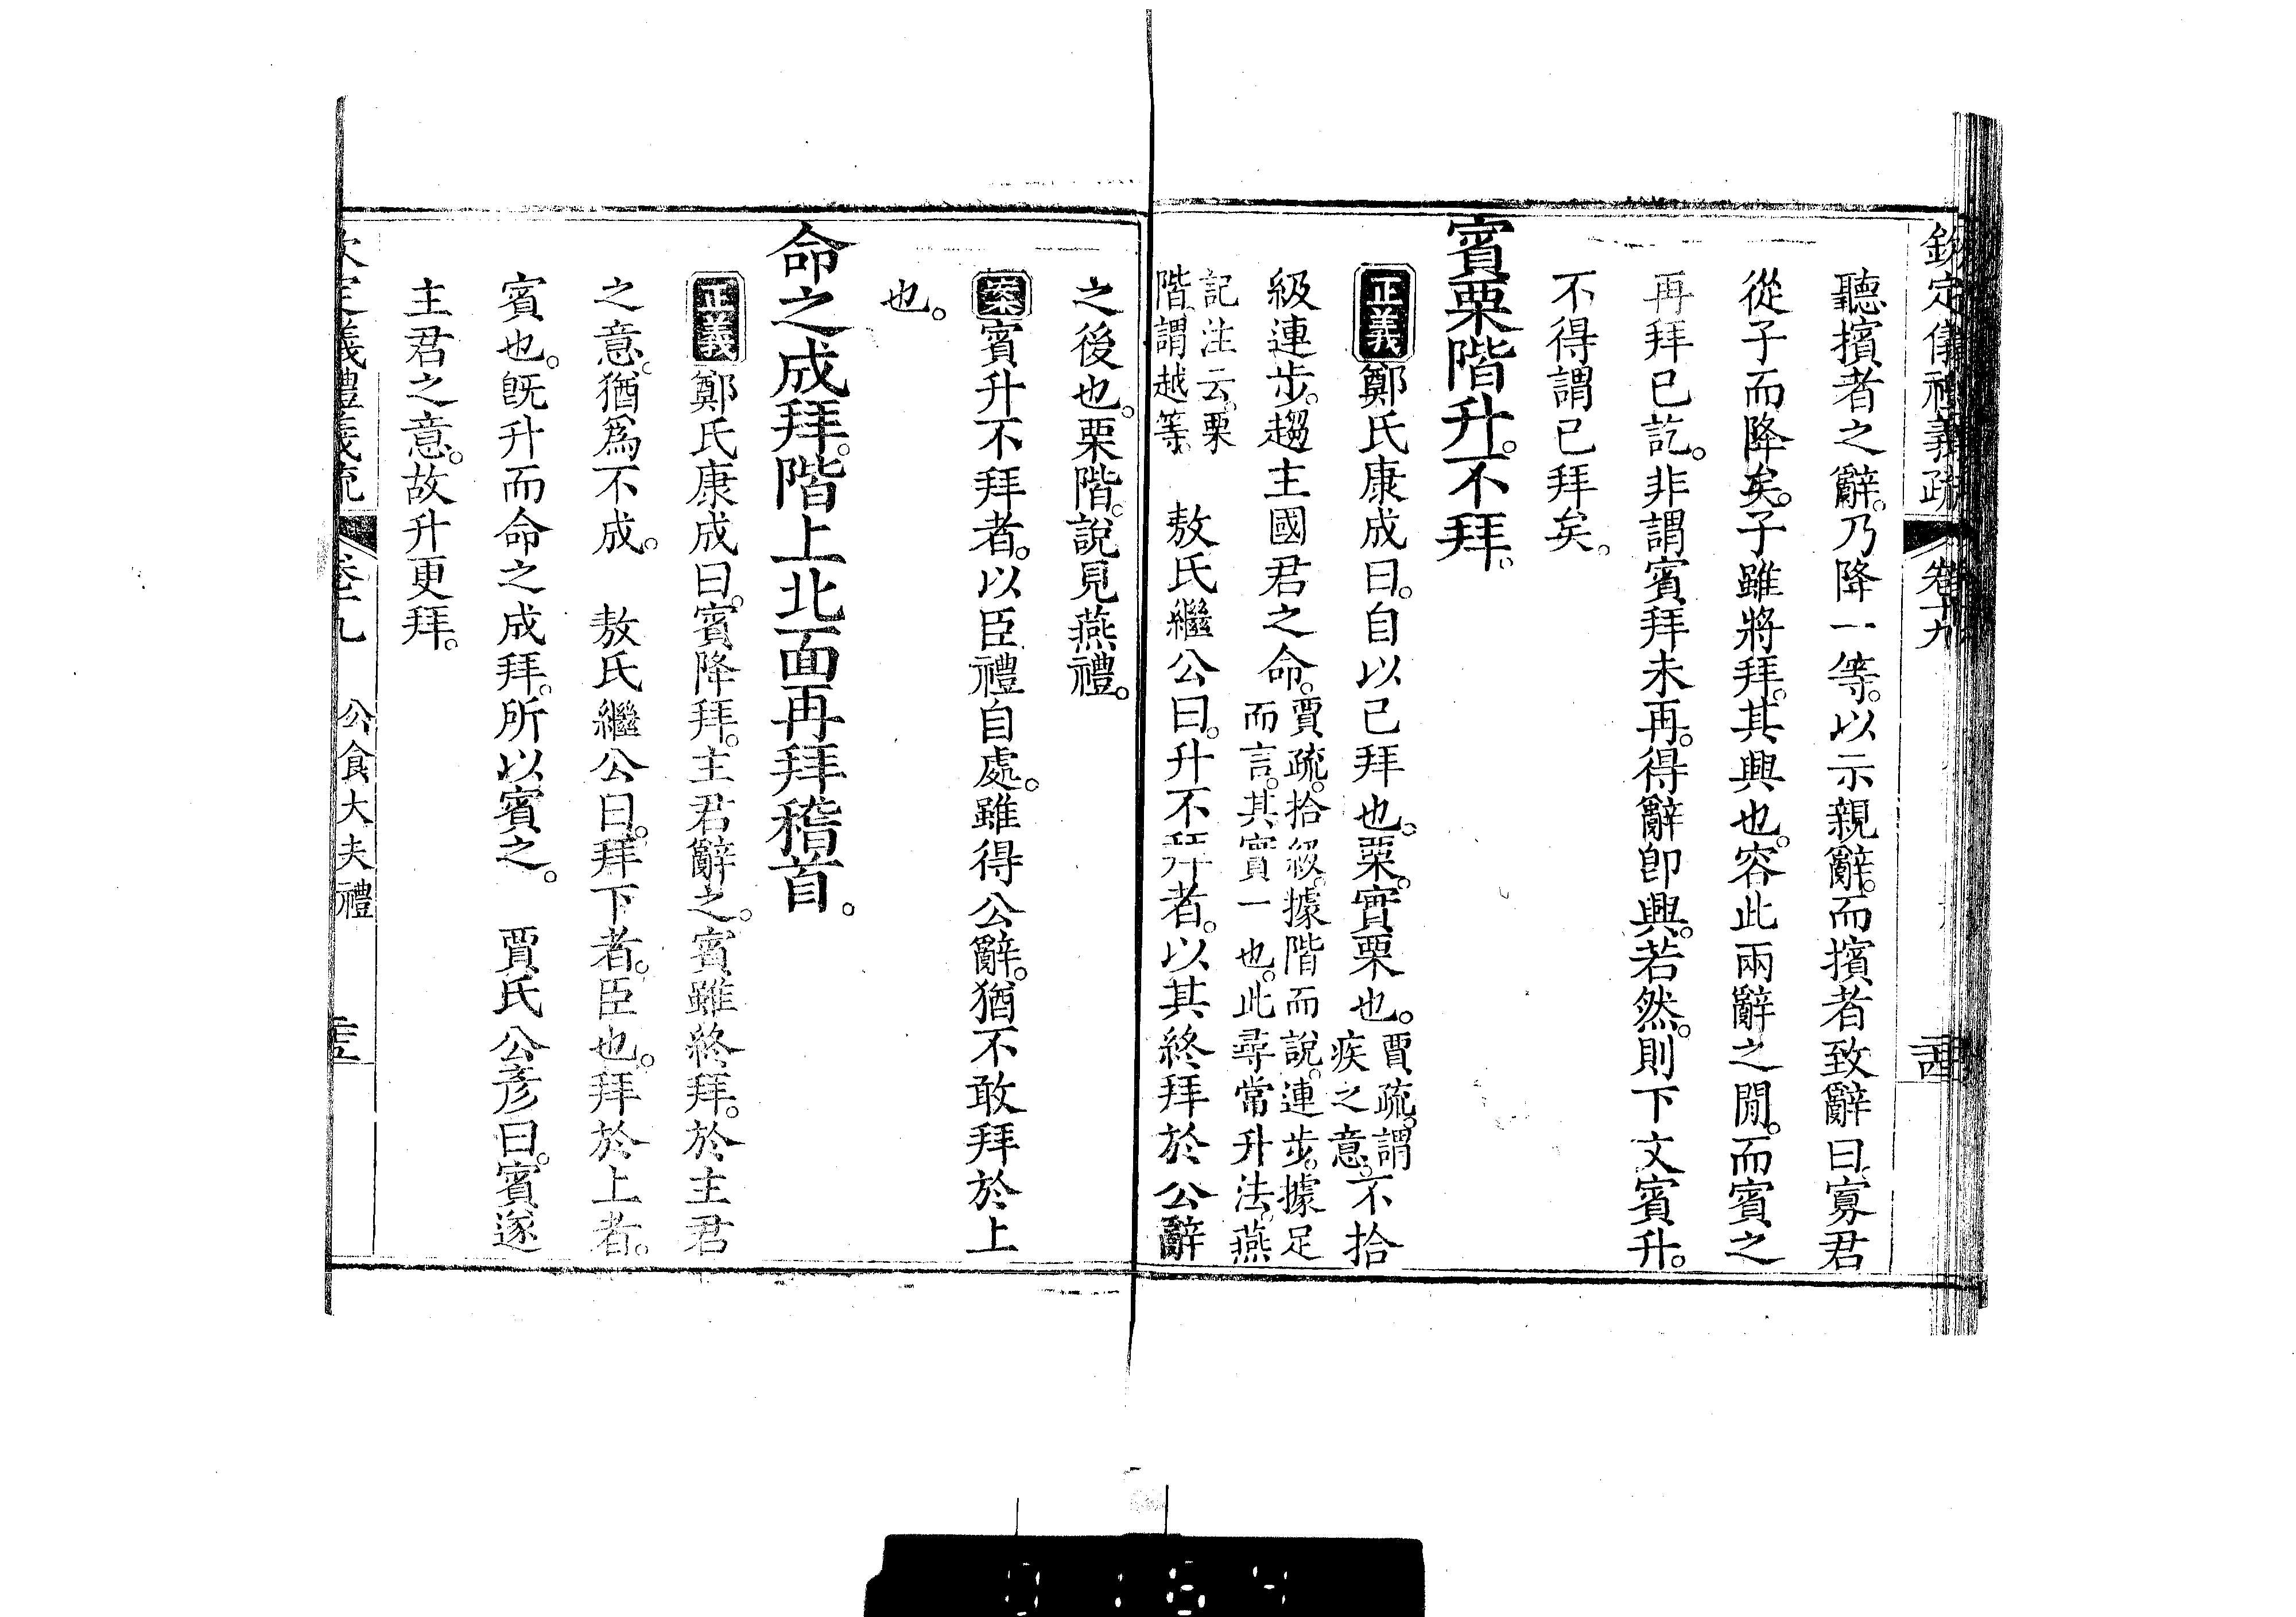 欽定儀禮義疏 卷十九
聽擯者之辭。乃降一等。以示親辭。而擯者致辭曰。寡君
從子而降矣。子雖將拜。其興也。容此兩辭之閒。而賓之
再拜已訖。非謂賓拜未再。得辭卽興。若然。則下文賓升。
不得謂已拜矣。
賓栗階升。不拜。
正義鄭氏康成曰。自以已拜也。栗。實栗也。賈疏。謂疾之意。不拾
級連步。趨主國君之命。賈疏。拾級。據階而說。連步。據足而言。其實一也。此尋常升法。燕
記注云。栗階。謂越等。 敖氏繼公曰。升不拜者。以其終拜於公辭
之後也。栗階。說見燕禮。
案賓升不拜者。以臣禮自處。雖得公辭。猶不敢拜於上
也。
命之成拜。階上北面再拜稽首。
正義鄭氏康成曰。賓降拜。主君辭之。賓雖終拜。於主君
之意。猶爲不成。 敖氏繼公曰。拜下者。臣也。拜於上者。
賓也。旣升而命之成拜。所以賓之。 賈氏公彥曰。賓遂
主君之意。故升更拜。
公食大夫禮
0164